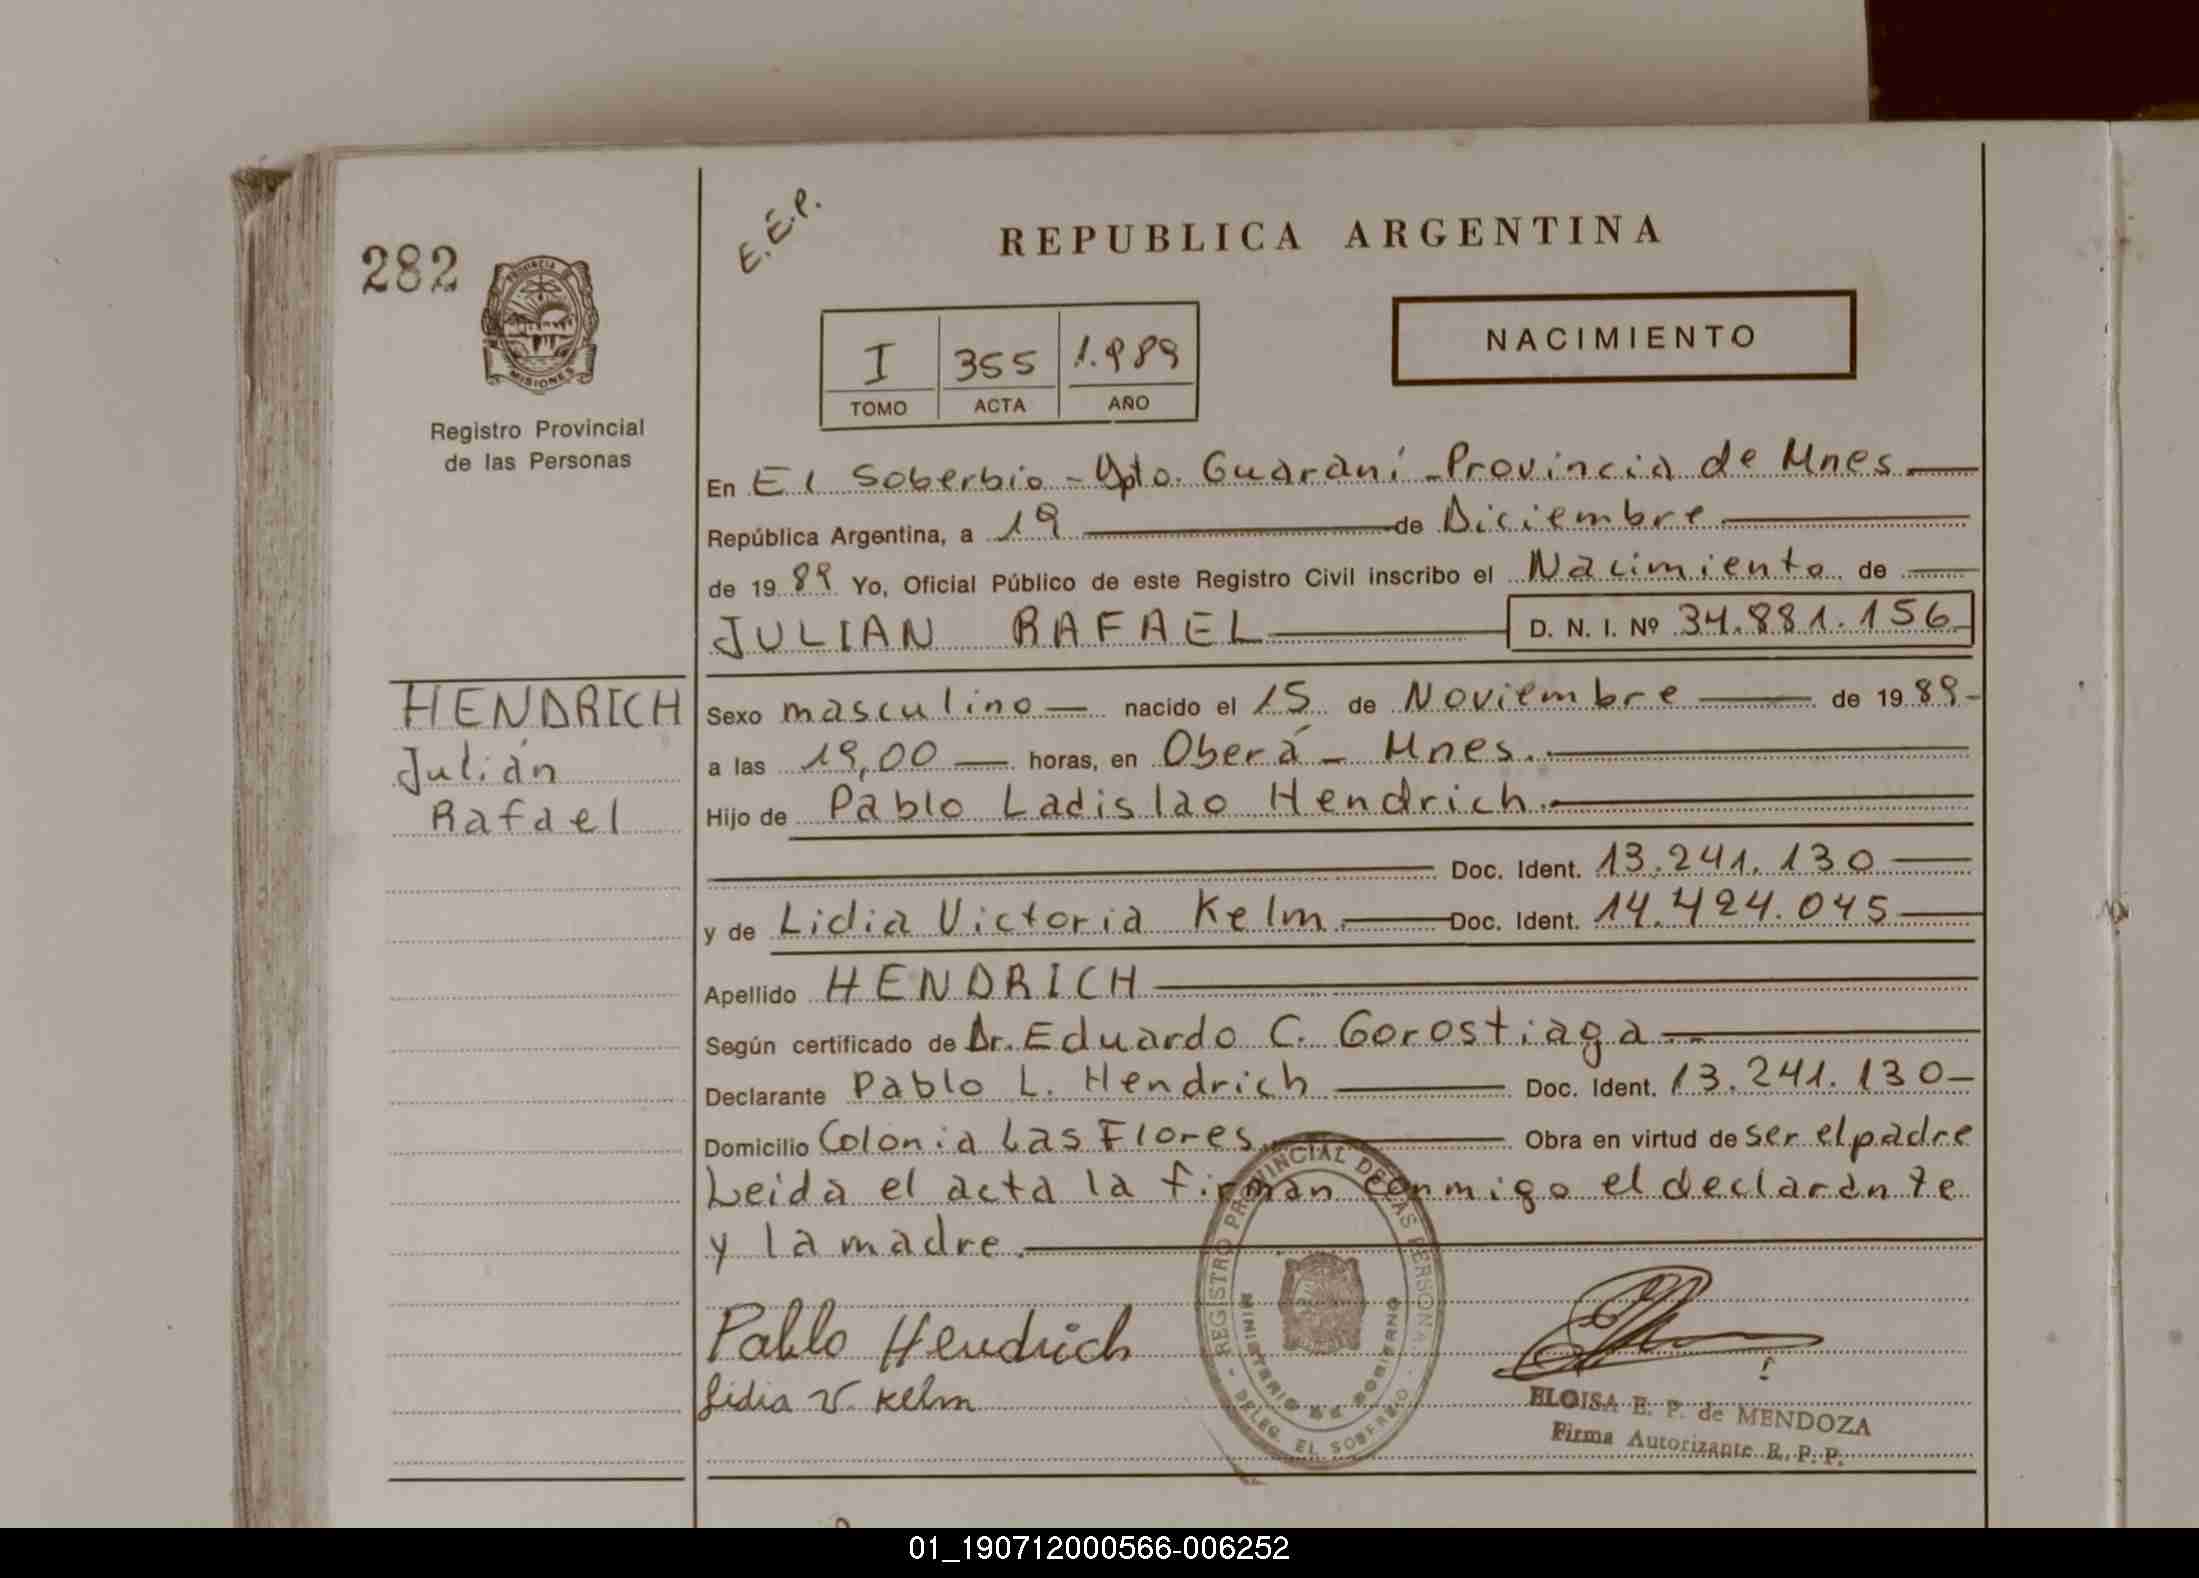 282
PROVINCIA DE
MISIONES
Registro Provincial
de las Personas
HENDRICH
Julián
Rafael
E.E.P.
REPUBLICA ARGENTINA
I 355 1.989
TOMO ACTA AÑO
NACIMIENTO
En El Soberbio - Dpto. Guaraní - Provincia de Mnes
República Argentina, a 19 de Diciembre
de 19 89 Yo, Oficial Público de este Registro Civil inscribo el Nacimiento de
JULIAN RAFAEL D. N. I. Nº 34.881.156
Sexo masculino nacido el 15 de Noviembre de 19 89
a las 19,00 horas, en Oberá - Mnes.
Hijo de Pablo Ladislao Hendrich
Doc. Ident. 13.241.130
y de Lidia Victoria Kelm Doc. Ident. 14.424.045
Apellido HENDRICH
Según certificado de Dr. Eduardo C. Gorostiaga
Declarante Pablo L. Hendrich Doc. Ident. 13.241.130
Domicilio Colonia Las Flores Obra en virtud de ser el padre
Leida el acta la firman conmigo el declarante
y la madre.
REGISTRO PROVINCIAL DE LAS PERSONAS
MINISTERIO DE GOBIERNO
DELEG. EL SOBERBIO
Pablo Hendrich
Lidia V. Kelm
ELOISA E. P. de MENDOZA
Firma Autorizante R. P. P.
01_190712000566-006252